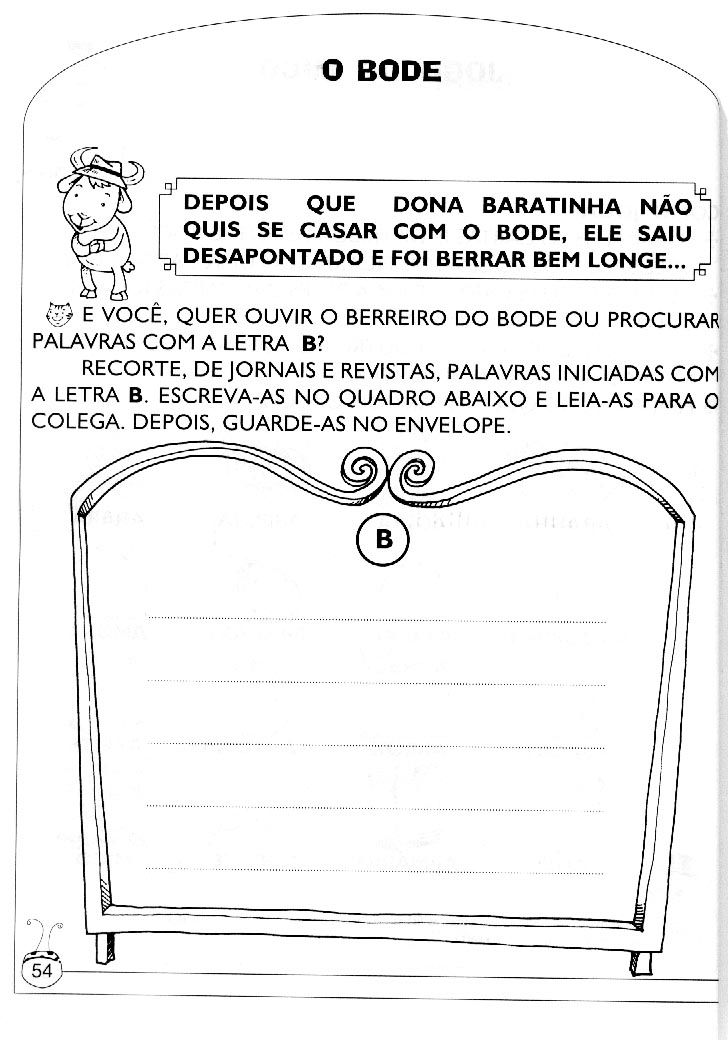 O BODE
DEPOIS QUE DONA BARATINHA NÃO
QUIS SE CASAR COM O BODE, ELE SAIU
DESAPONTADO E FOI BERRAR BEM LONGE...
E VOCÊ, QUER OUVIR O BERREIRO DO BODE OU PROCURAR
PALAVRAS COM A LETRA B?
RECORTE, DE JORNAIS E REVISTAS, PALAVRAS INICIADAS COM
A LETRA B. ESCREVA-AS NO QUADRO ABAIXO E LEIA-AS PARA O
COLEGA. DEPOIS, GUARDE-AS NO ENVELOPE.
B
54